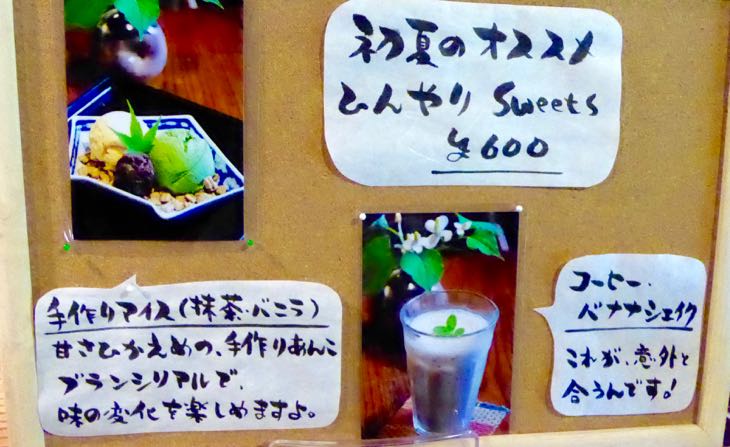 初夏のオススメ
ひんやり Sweets
¥600
手作りアイス(抹茶・バニラ)
甘さひかえめの、手作りあんこ
ブランシリアルで、
味の変化を楽しめますよ。
コーヒー・
バナナシェイク
これが、意外と
合うんです!